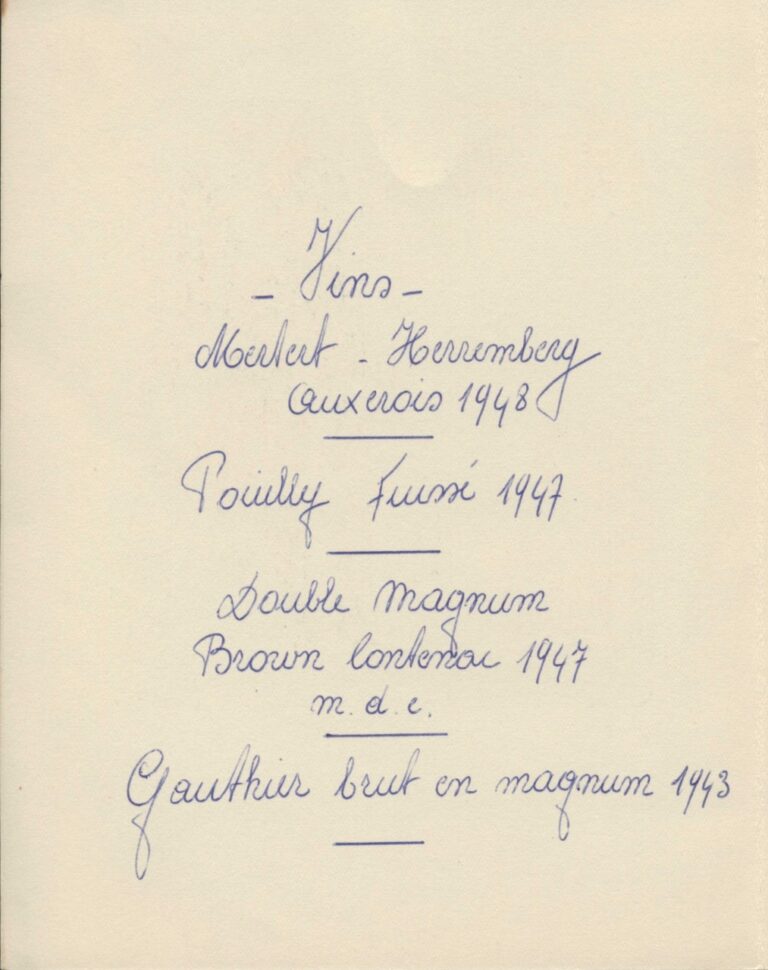 - Vins -
Mertert - Herremberg
Auxerois 1948
Pouilly Fuissé 1947
Double Magnum
Brown Contenac 1947
m. d. c.
Gauthier brut en magnum 1943